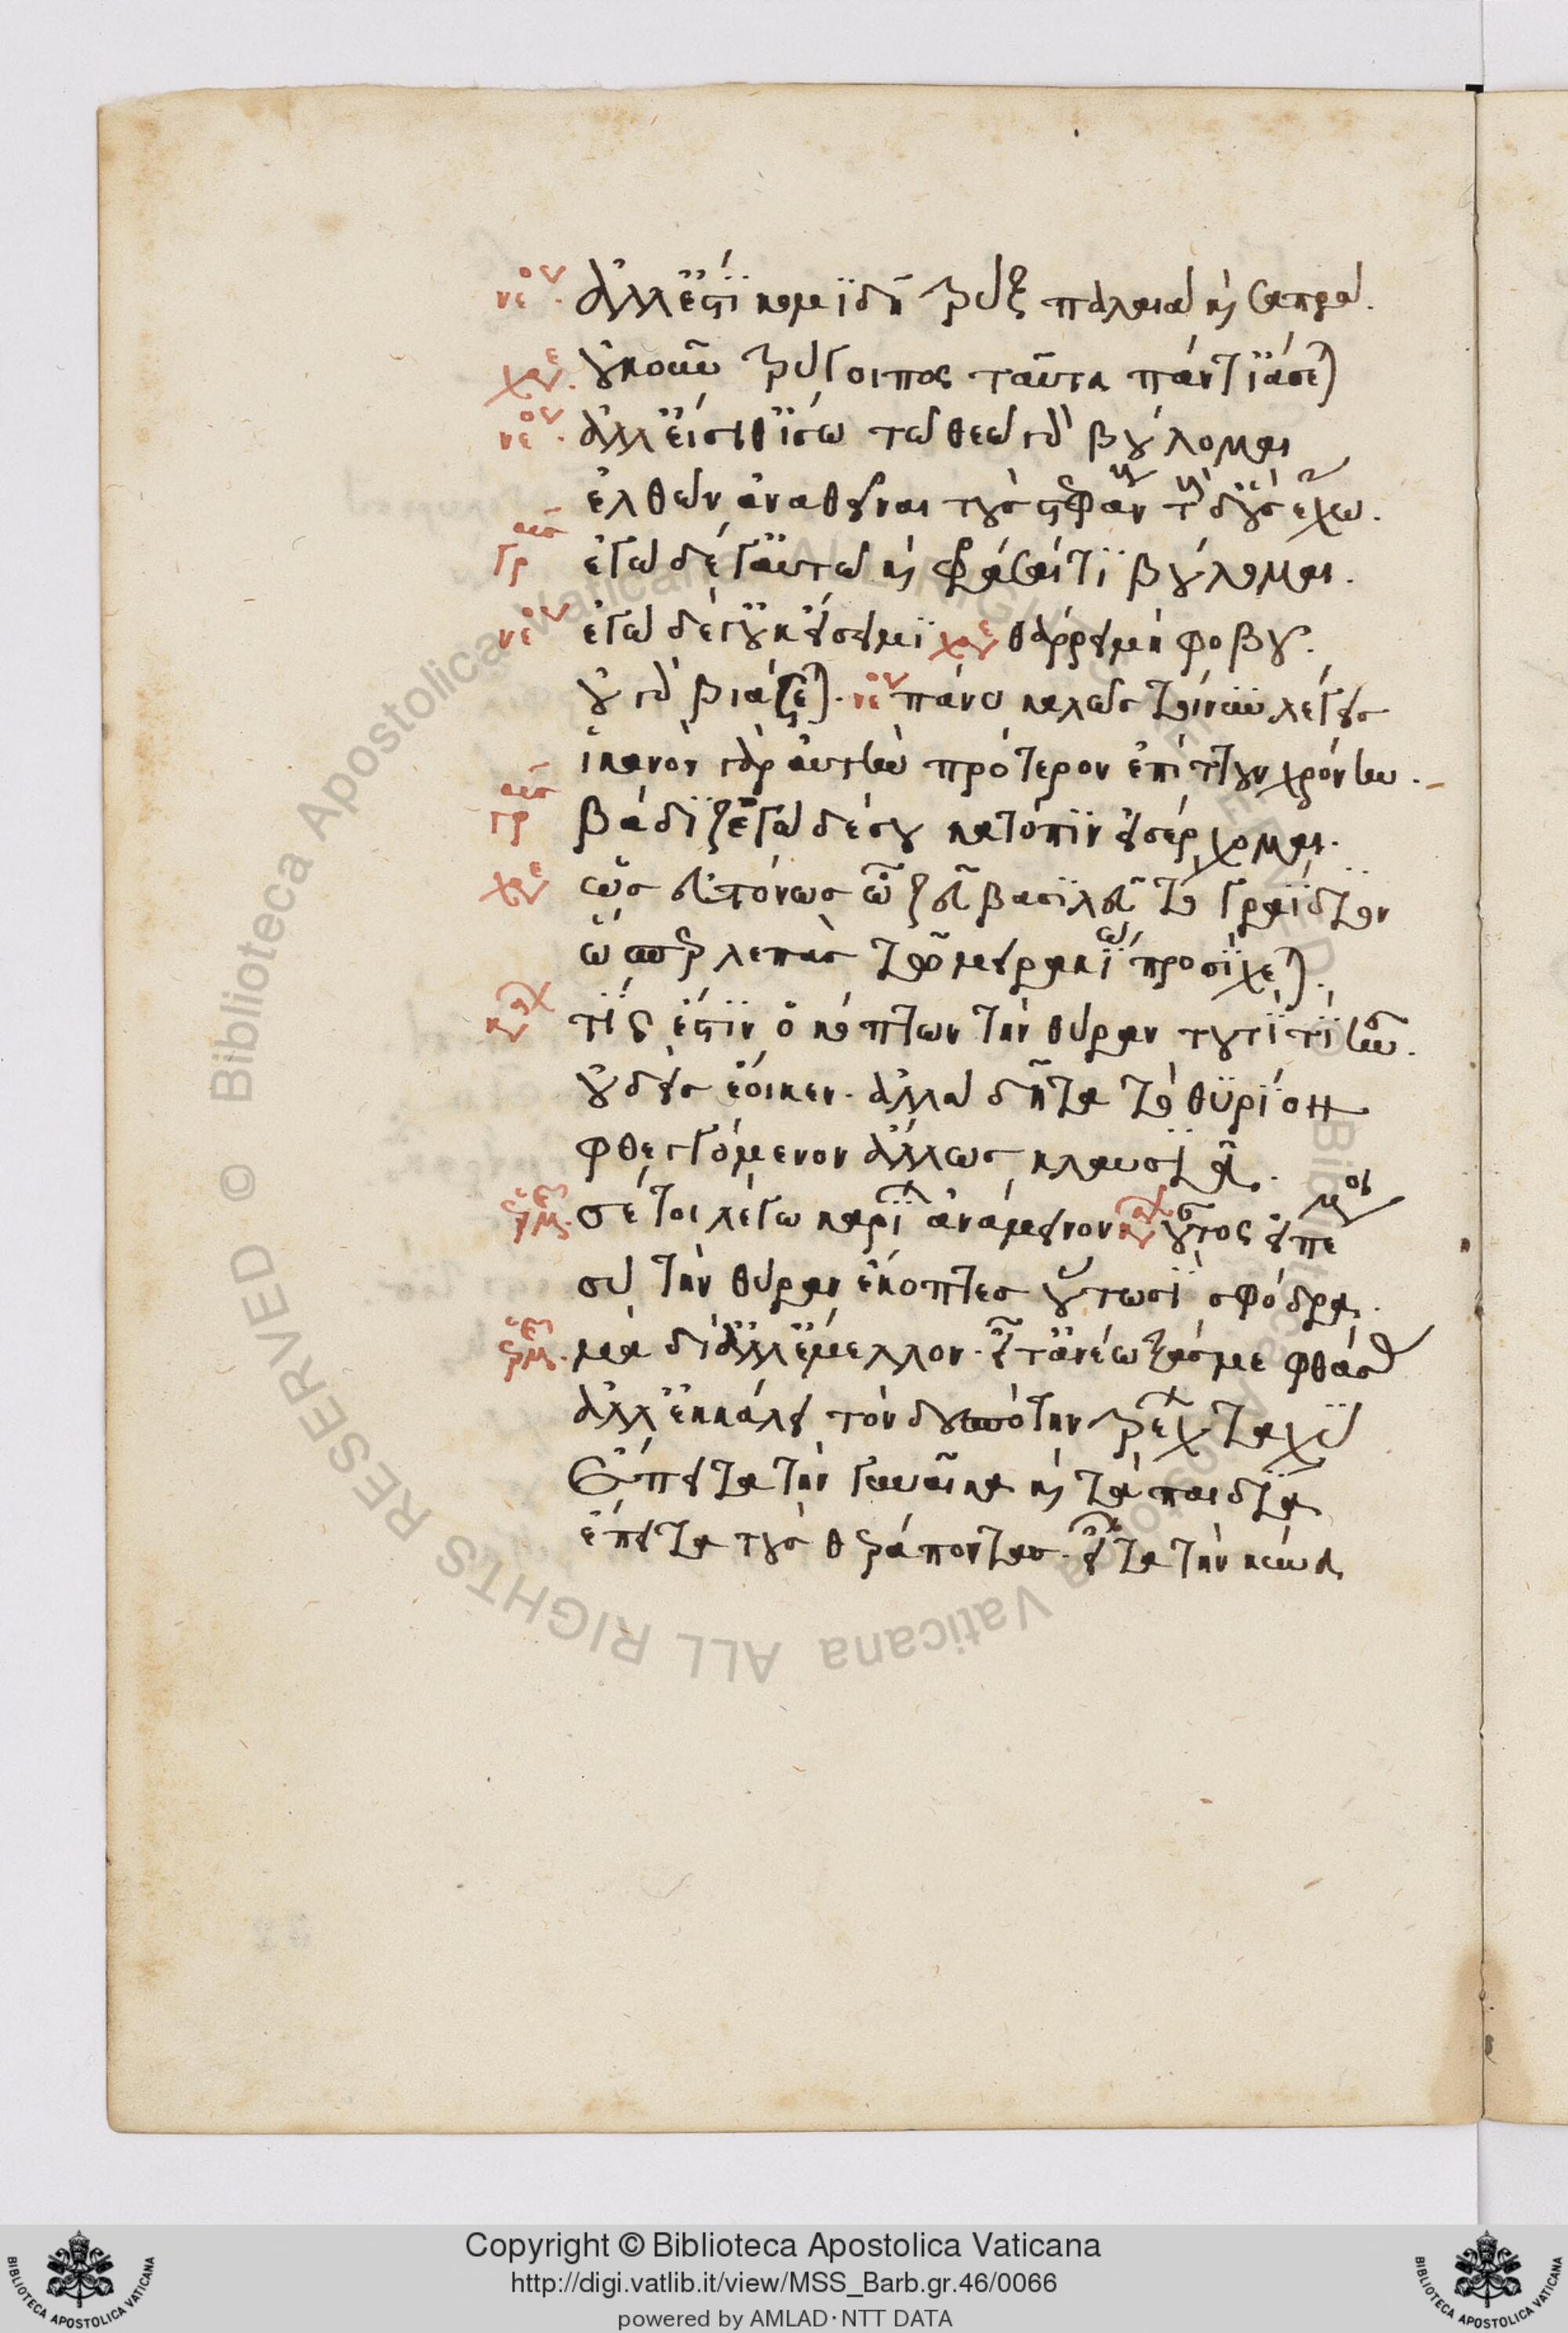 νε. ἀλλ' ἔστι κομιδῇ τρὺξ παλαιὰ καὶ σαπρά.
χρε. οὐκοῦν τρύγοιπος ταῦτα πάντ' ἰάσεται
νε. ἀλλ' εἴσιθ' εἴσω τῷ θεῷ γὰρ βούλομαι
ἐλθὼν ἀναθεῖναι τοὺς στεφάνους τούσδ' οὓς ἔχω.
γραῦς ἐγὼ δέ γ' αὐτῷ καὶ φράσαι τι βούλομαι.
νε. ἐγὼ δέ γ' οὐκ εἴσειμι χρε θάρρει μὴ φοβοῦ.
οὐ γὰρ βιάσεται. νε πάνυ καλῶς τοίνυν λέγεις
ἱκανὸν γὰρ αὐτὴν πρότερον ἐπίττουν χρόνον.
γραῦς βάδιζ' ἐγὼ δέ σου κατόπιν εἰσέρχομαι.
χρε ὡς εὐτόνως ὦ ζεῦ βασιλεῦ τὸ γρᾴδιον
ὥσπερ λεπὰς τῷ μειρακίῳ προσίσχεται.
καρ τίς ἐσθ' ὁ κόπτων τὴν θύραν τουτὶ τί ἦν.
οὐδεὶς ἔοικεν. ἀλλὰ δῆτα τὸ θύριον
φθεγγόμενον ἄλλως κλαυσιᾷ.
ἑρμ. σέ τοι λέγω καρίων ἀνάμεινον καρ οὗτος εἰπέ μοι
σὺ τὴν θύραν ἔκοπτες οὑτωσὶ σφόδρα.
ἑρμ. μὰ δί' ἀλλ' ἔμελλον. εἶτ' ἀνέῳξάς με φθάσας
ἀλλ' ἐκκάλει τὸν δεσπότην τρέχων ταχὺ
ἔπειτα τὴν γυναῖκα καὶ τὰ παιδία
ἔπειτα τοὺς θεράποντας. εἶτα τὴν κύνα
Copyright © Biblioteca Apostolica Vaticana
http://digi.vatlib.it/view/MSS_Barb.gr.46/0066
powered by AMLAD · NTT DATA